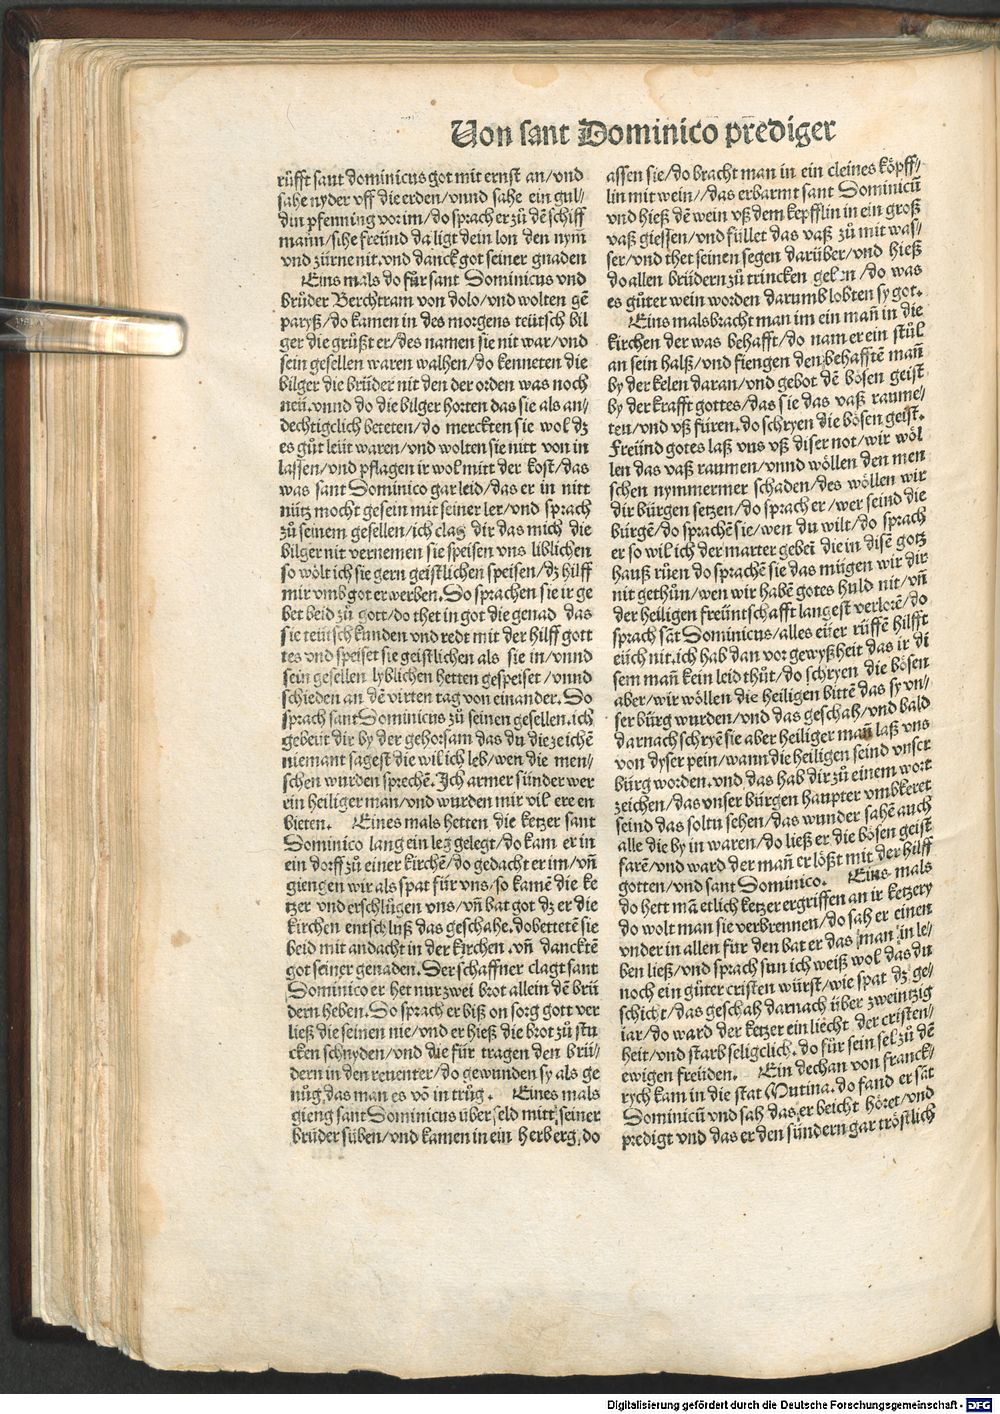 Von sant Dominico prediger
rüfft sant dominicus got mit ernst an/vnd
sahe nyder vff die erden/vnnd sahe ein gul⸗
din pfenning vor im/do sprach er zů dē schiff
mann/sihe freünd da ligt dein lon den nym̄
vnd zürne nit.vnd danck got seiner gnaden
Eins mals do für sant Dominicus vnd
brüder Berchtram von dolo/vnd wolten gē
paryß/do kamen in des morgens teütsch bil
ger die grüßt er/des namen sie nit war/vnd
sein gesellen waren walhen/do kenneten die
bilger die brüder nit den der orden was noch
neü.vnnd do die bilger horten das sie als an⸗
dechtigclich beteten/do merckten sie wol dz
es gůt leüt waren/vnd wolten sie nitt von in
lassen/vnd pflagen ir wol mitt der kost/das
was sant Dominico gar leid/das er in nitt
nütz mocht gesein mit seiner ler/vnd sprach
zů seinem gesellen/ich clag dir das mich die
bilger nit vernemen sie speisen vns liblichen
so wölt ich sie gern geistlichen speisen/dz hilff
mir vmb got erwerben.Do sprachen sie ir ge
bet beid zů gott/do thet in got die genad das
sie teütsch kunden vnd redt mit der hilff gott
tes vnd speiset sie geistlichen als sie in/vnnd
sein gesellen lyblichen hetten gespeiset/vnnd
schieden an dē virten tag von einander.Do
sprach sant Dominicus zů seinen gesellen.ich
gebeut dir by der gehorsam das du die zeichē
niemant sagest die wil ich leb/wen die men⸗
schen wurden sprechē.Ich armer sünder wer
ein heiliger man/vnd wurden mir vil ere en
bieten. Eines mals hetten die ketzer sant
Dominico lang ein leg gelegt/do kam er in
ein dorff zů einer kirchē/do gedacht er im/vn̄
giengen wir als spat für vns/so kamē die ke
tzer vnd erschlügen vns/vn̄ bat got dz er die
kirchen entschluß das geschahe.do bettetē sie
beid mit andacht in der kirchen.vn̄ dancktē
got seiner genaden.Der schaffner clagt sant
Dominico er het nur zwei brot allein dē brü
dern heben.Do sprach er biß on sorg gott ver
ließ die seinen nie/vnd er hieß die brot zů stu
cken schnyden/vnd die für tragen den brü⸗
dern in den reuenter/do gewunden sy als ge
nůg das man es vō in trůg. Eines mals
gieng sant Dominicus über feld mitt seiner
brüder süben/vnd kamen in ein herberg.do
assen sie/do bracht man in ein cleines köpff⸗
lin mit wein//das erbarmt sant Dominicū
vnd hieß dē wein vß dem kepfflin in ein groß
vaß giessen/vnd füllet das vaß zů mit was⸗
ser/vnd thet seinen segen darüber/vnd hieß
do allen brüdern zů trincken geben/do was
es gůter wein worden darumb lobten sy got.
Eins mals bracht man im ein man̄ in die
kirchen der was behafft/do nam er ein stůl
an sein halß/vnd fiengen den behafftē man̄
by der kelen daran/vnd gebot dē bösen geist
by der krafft gottes/das sie das vaß raume⸗
ten/vnd vß füren.do schryen die bösen geist.
Freünd gotes laß vns vß diser not/wir wöl
len das vaß raumen/vnnd wöllen den men
schen nymmermer schaden/des wöllen wir
dir bürgen setzen/do sprach er/wer seind die
bürgē/do sprachē sie/wen du wilt/do sprach
er so wil ich der marter gebeī die in disē gotz
hauß rüen do sprachē sie das mügen wir dir
nit gethůn/wen wir habē gotes huld nit/vn̄
der heiligen freüntschafft langest verlorē/do
sprach sāt Dominicus/alles eüer rüffē hilfft
eüch nit.ich hab dan vor gewyßheit das ir di
sem man̄ kein leid thůt/do schryen die bösen
aber/wir wöllen die heiligen bittē das sy vn⸗
ser bürg wurden/vnd das geschah/vnd bald
darnach schryē sie aber heiliger man̄ laß vns
von dyser pein/wann die heiligen seind vnser
bürg worden.vnd das hab dir zů einem wort
zeichen/das vnser bürgen haupter vmbkeret
seind das soltu sehen/das wunder sahē auch
alle die by in waren/do ließ er die bösen geist
farē/vnd ward der man̄ erlößt mit der hilff
gotten/vnd sant Dominico. Eins mals
do hett mā etlich ketzer ergriffen an ir ketzery
do wolt man sie verbrennen/do sah er einen
vnder in allen für den bat er das man in le⸗
ben ließ/vnd sprach sun ich weiß wol das du
noch ein gůter cristen würst/wie spat dz ge⸗
schicht/das geschah darnach über zweintzig
iar/do ward der ketzer ein liecht der cristen⸗
heit/vnd starb seligclich.do für sein sel zů dē
ewigen freüden. Ein dechan von franck⸗
rych kam in die stat Mutina.do fand er sāt
Dominicū vnd sah das er beicht höret/vnd
predigt vnd das er den sündern gar tröstlich
Digitalisierung gefördert durch die Deutsche Forschungsgemeinschaft - DFG